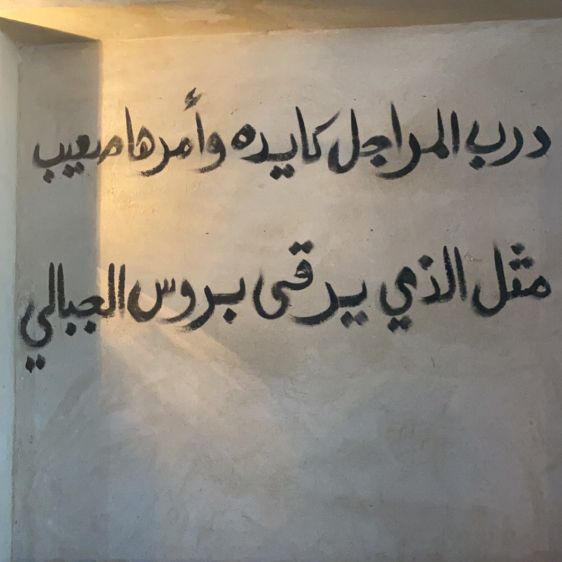 درب المراجل كايده وأمرها صعيب
مثل الذي يرقى بروس الجبالي